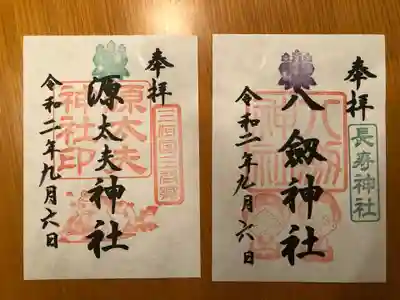 奉拝
源太夫神社
令和二年九月六日
源太夫
神社印
奉拝
八劔神社
令和二年九月六日
長寿神社